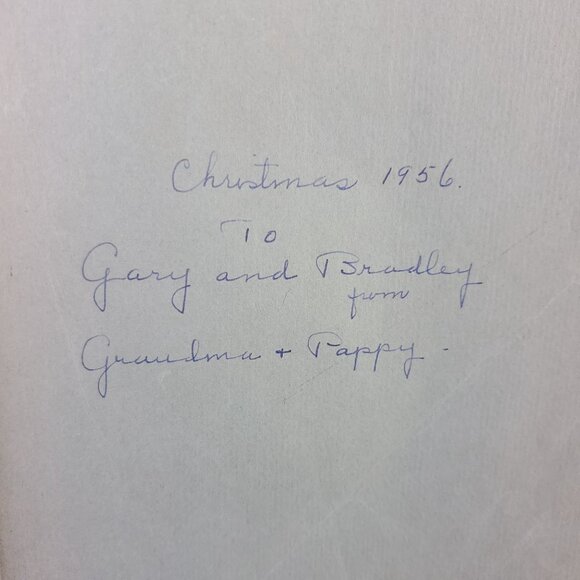 Christmas 1956.
To
Gary and Bradley
from
Grandma + Pappy -